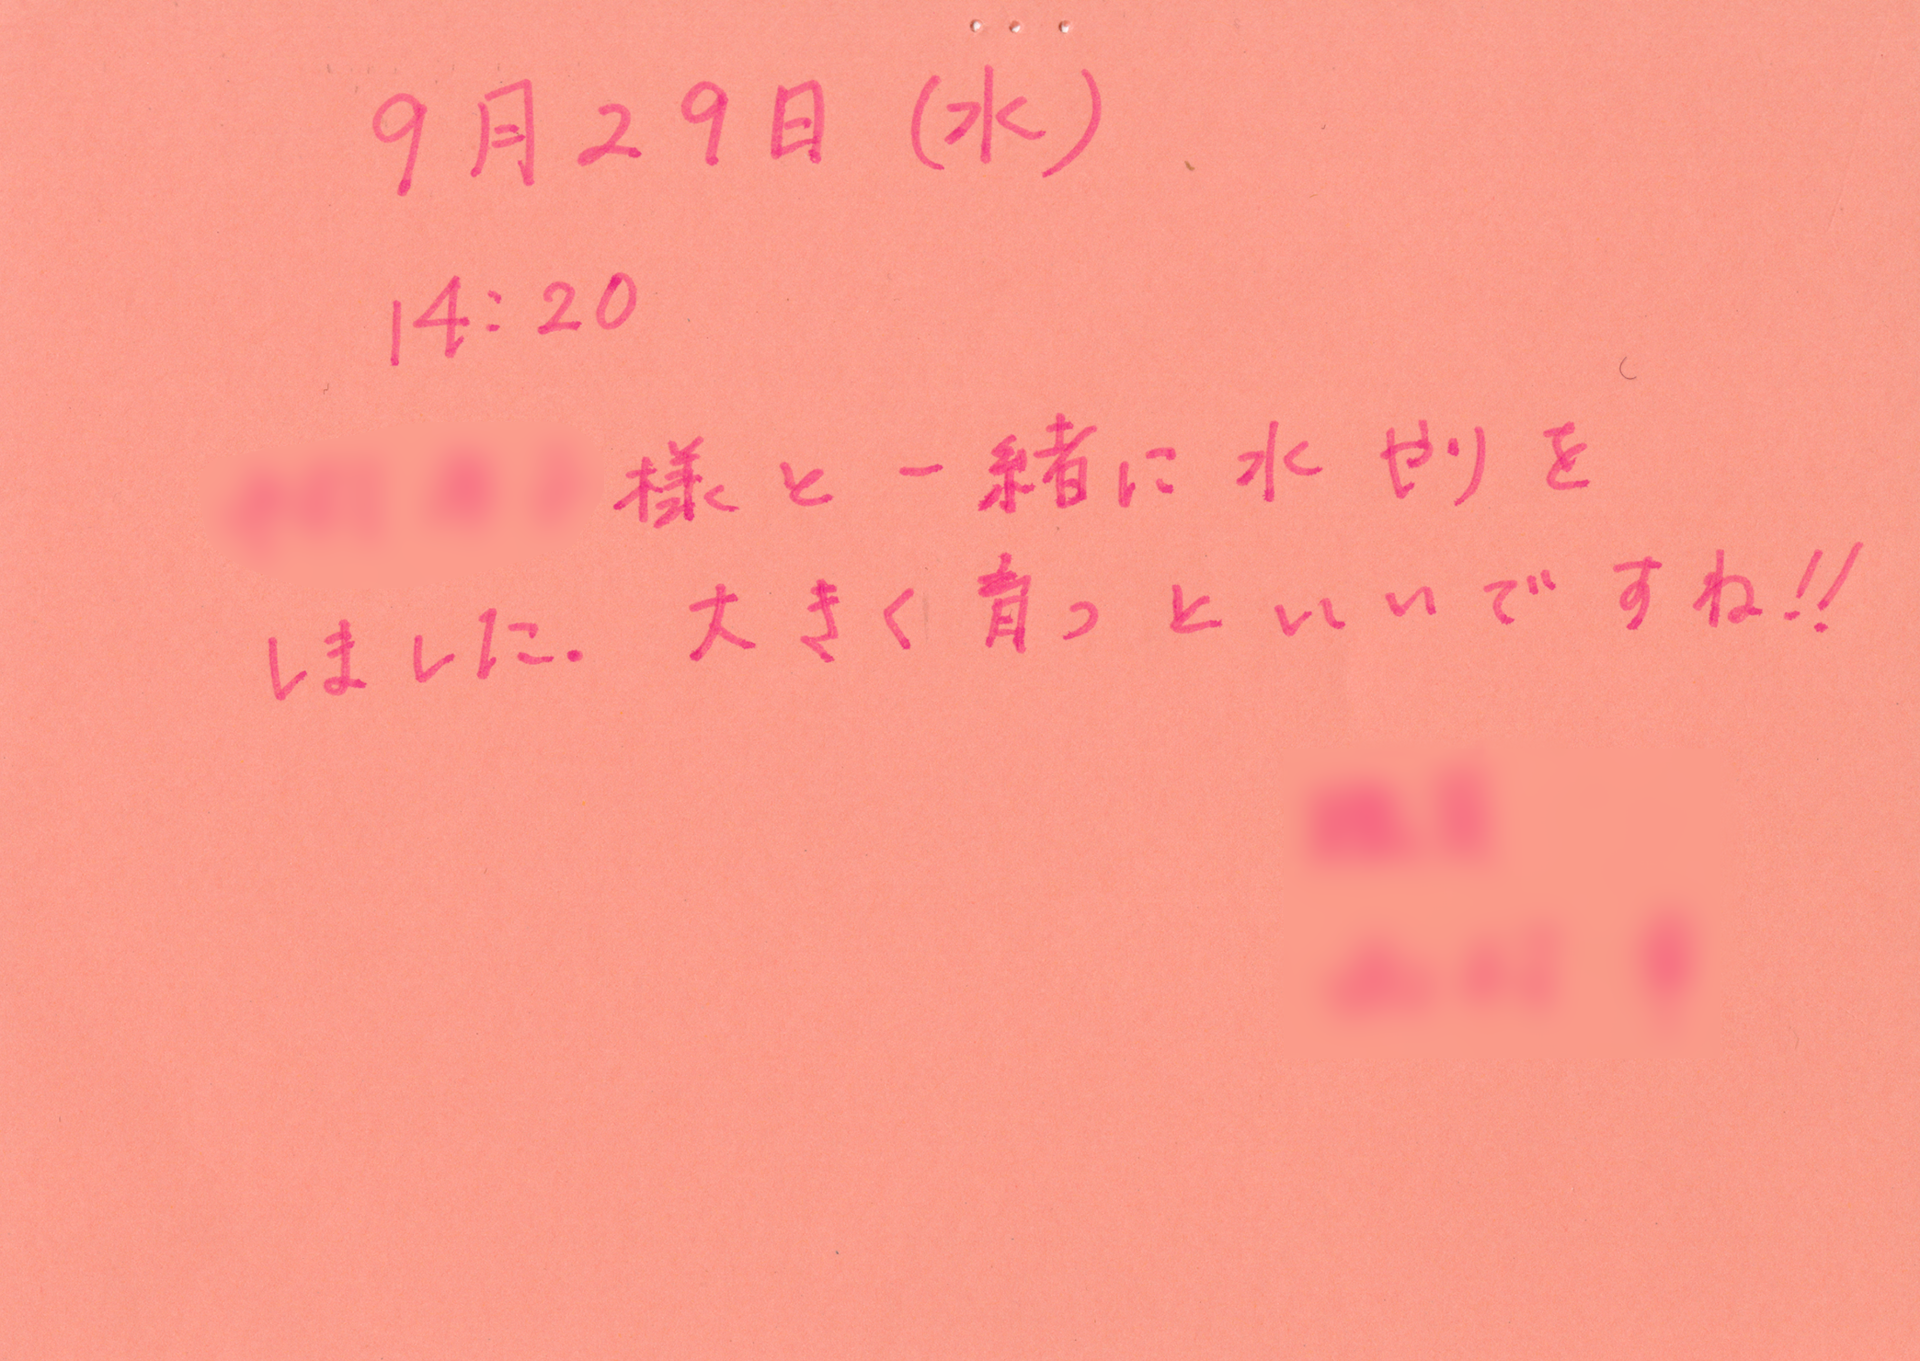 9月29日(水)
14:20
様と一緒に水やりを
しました. 大きく育つといいですね!!